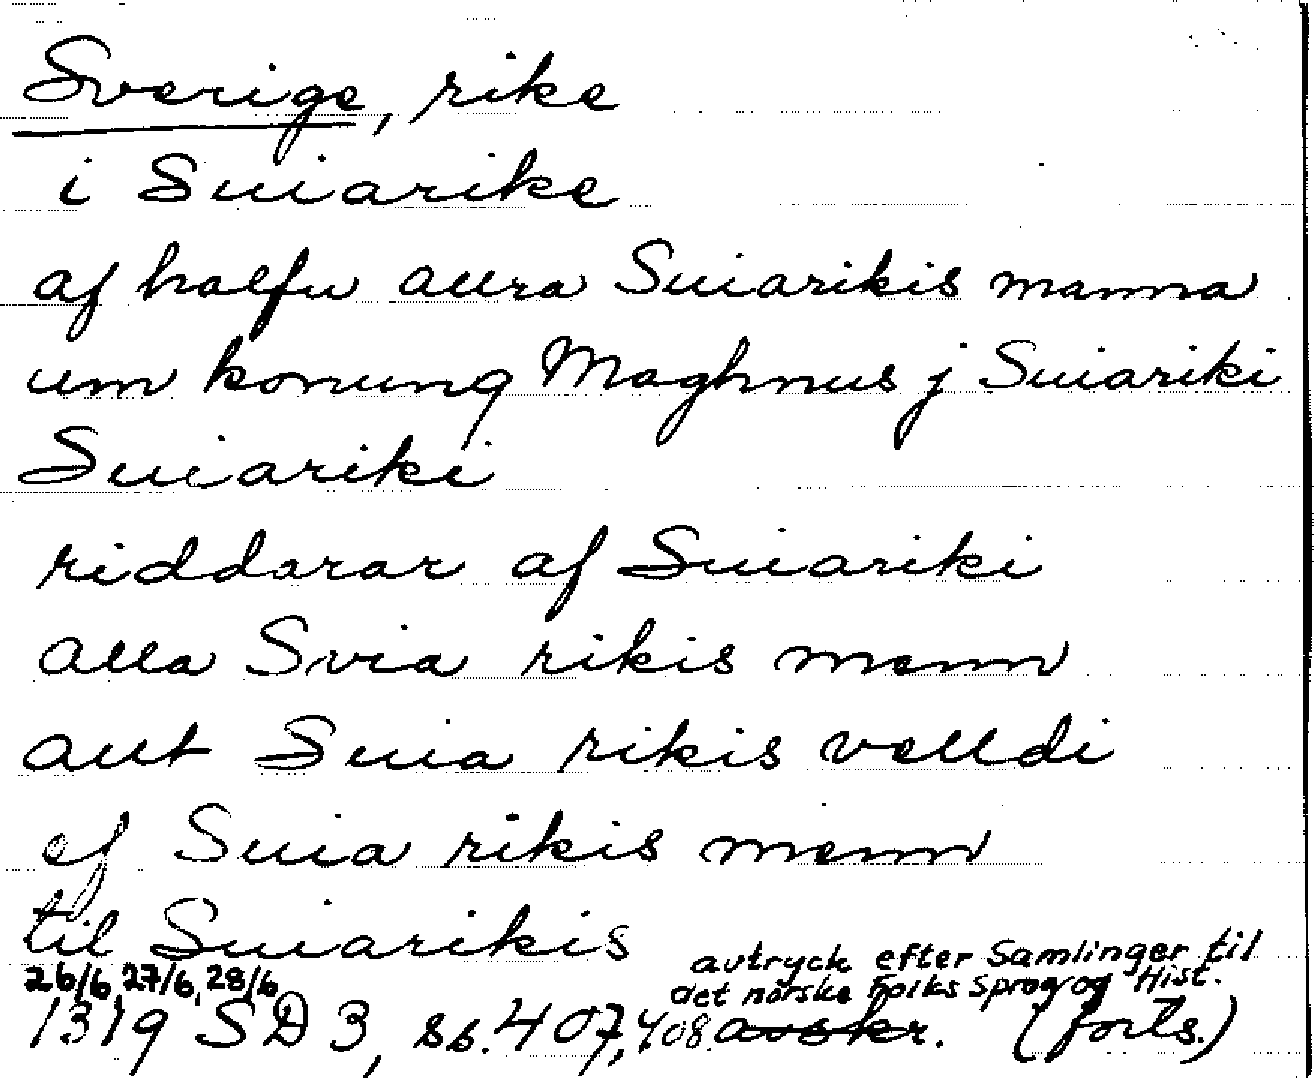 Sverige, rike
i Suiarike
af halfu allra Suiarikis manna
um konung Maghnus j Suiariki
Suiariki
riddarar af Suiariki
alla Svia rikis menn
allt Suia rikis velldi
ef Suia rikis menn
til Suiarikis
avtryck efter Samlinger til
26/6, 27/6, 28/6 det norske Folks Sprog og Hist.
1319 SD 3, ss. 407, 408. avskr. (forts.)